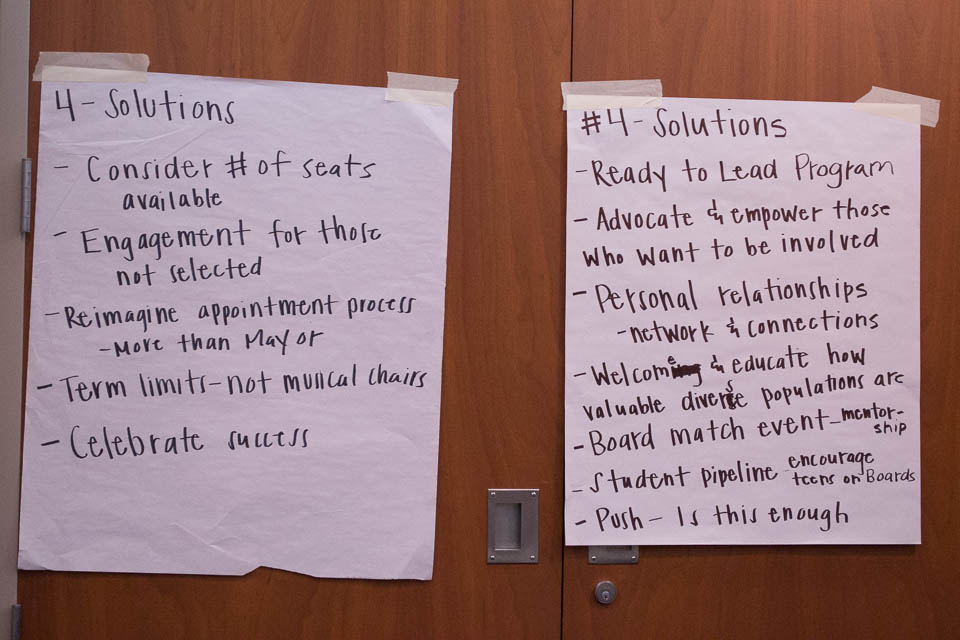 4 - Solutions
- Consider # of seats
available
- Engagement for those
not selected
- Reimagine appointment process
- More than Mayor
- Term limits - not musical chairs
- Celebrate success
#4 - Solutions
- Ready to Lead Program
- Advocate & empower those
who want to be involved
- Personal relationships
- network & connections
- Welcome & educate how
valuable diverse populations are
- Board match event - mentor-
ship
- Student pipeline encourage
teens on Boards
- Push - Is this enough